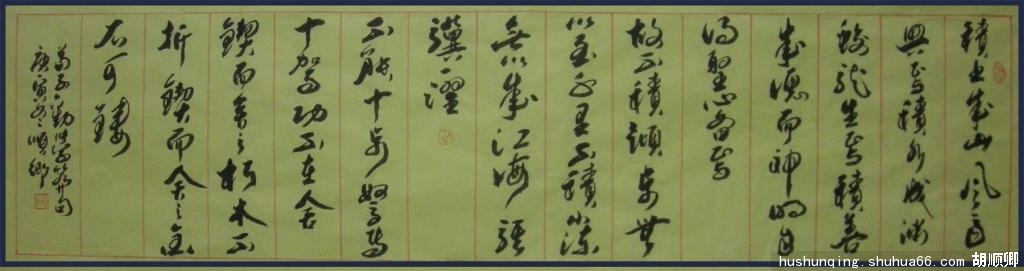 積土成山风雨
興焉積水成渊
蛟龙生焉積善
成德而神明自
得聖心备焉
故不積步無
以至千里不積小流
無以成江海骐
驥一躍
不能十步驽马
十驾功不在舍
鍥而舍之朽木不
折鍥而舍之金
石可鏤
荀子勸学篇句
庚寅冬顺卿
hushunqing.shuhua66.com 胡顺卿